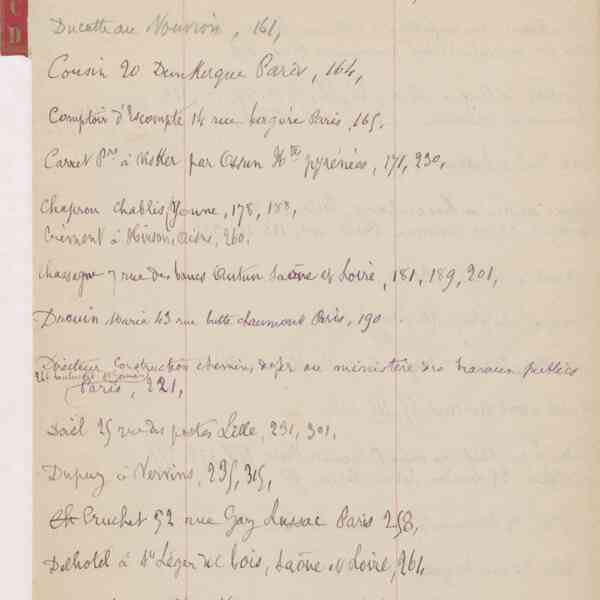 C
D
Ducatteau Nouvion, 161,
Cousin 20 Dunkerque Paris, 164,
Comptoir d'Escompte 14 rue bergère Paris, 165.
Carret à par Ossun Hte pyrénées, 171, 230,
Chapron Chablis (Yonne, 178, 188,
Crément à Hirson, Aisne, 260.
Chassagne 7 rue des bancs Autun Saône et Loire, 181, 189, 201,
Drouin Maria 43 rue butte chaumont Paris, 190.
Directeur Construction chemins de fer au ministère des travaux publics
Paris, 221,
25 rue des postes Lille, 231, 301.
Dupuy à Vervins, 235, 315,
Cruchet 52 rue Gay Lussac Paris 258,
à St Léger du bois, Saône et Loire, 261,